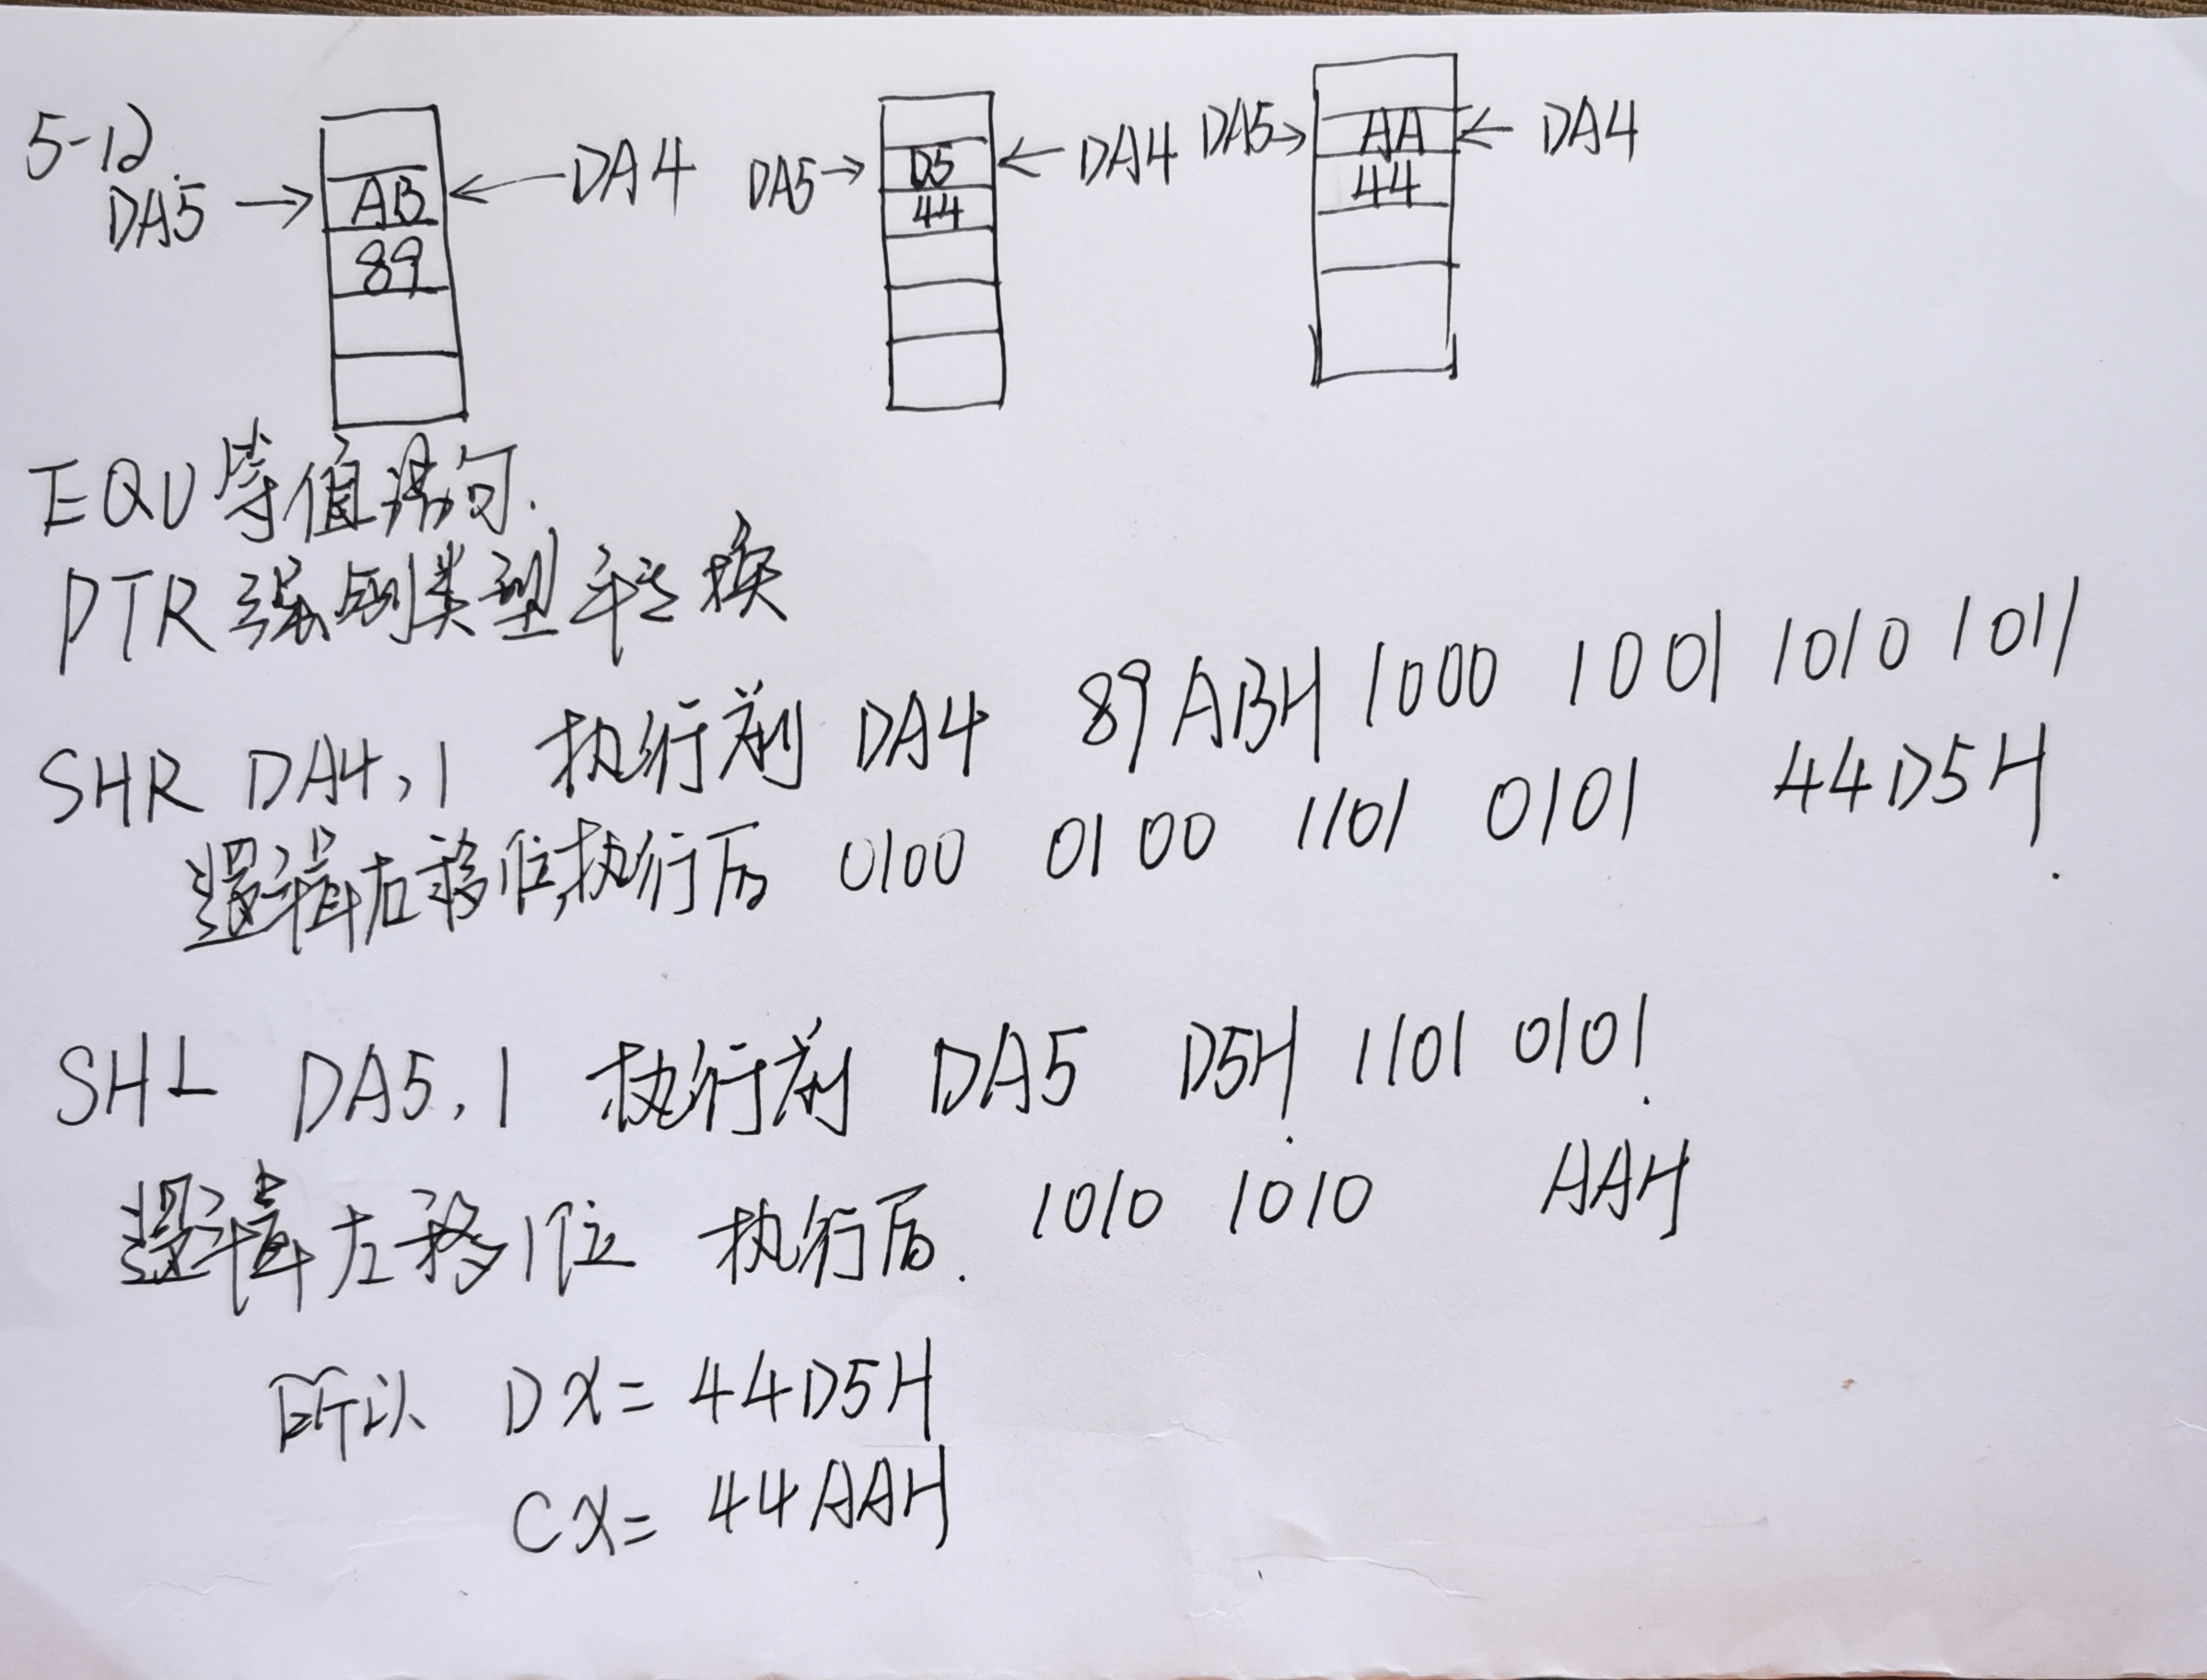 5-12
DA5 → AB ← DA4
89
DA5 → D5 ← DA4
44
DA5 → AA ← DA4
44
EQU等值语句.
PTR 强制类型转换
SHR DA4,1 执行前 DA4 89ABH 1000 1001 1010 1011
逻辑右移1位,执行后 0100 0100 1101 0101 44D5H.
SHL DA5,1 执行前 DA5 D5H 1101 0101.
逻辑左移1位 执行后. 1010 1010 AAH
所以 DX=44D5H
CX=44AAH